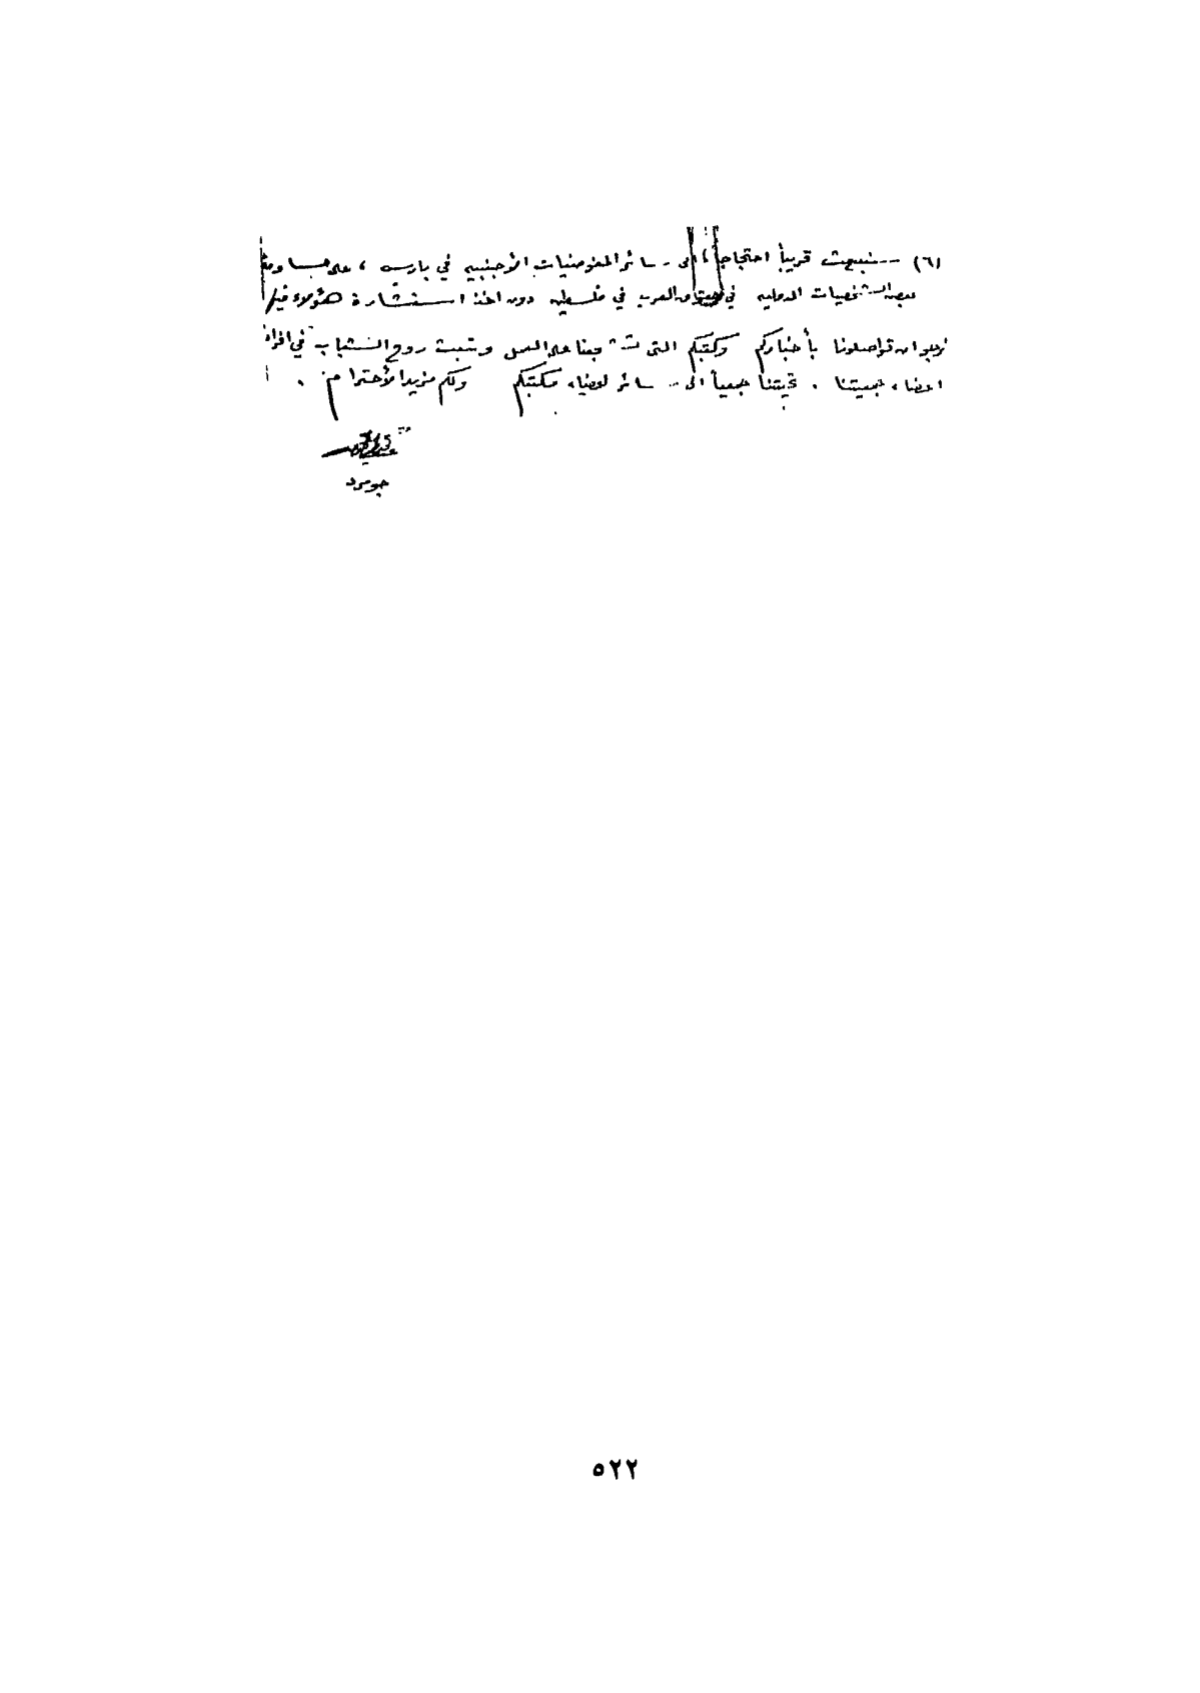 (٦) سنبعث قريباً احتجاجاً، الى سائر المفوضيات الأجنبية في باريس، على مساومة
بعض الشخصيات الدولية في حقوق العرب في فلسطين دون اخذ استشارة هؤلاء فيها
نرجو ان تواصلونا بأخباركم وكتبكم التي تشجعنا على العمل وتبعث روح الشباب في افراد
اعضاء جمعيتنا . تحيتنا جميعاً الى سائر اعضاء مكتبكم ولكم مزيد الأحترام .
جومرد
٥٢٢